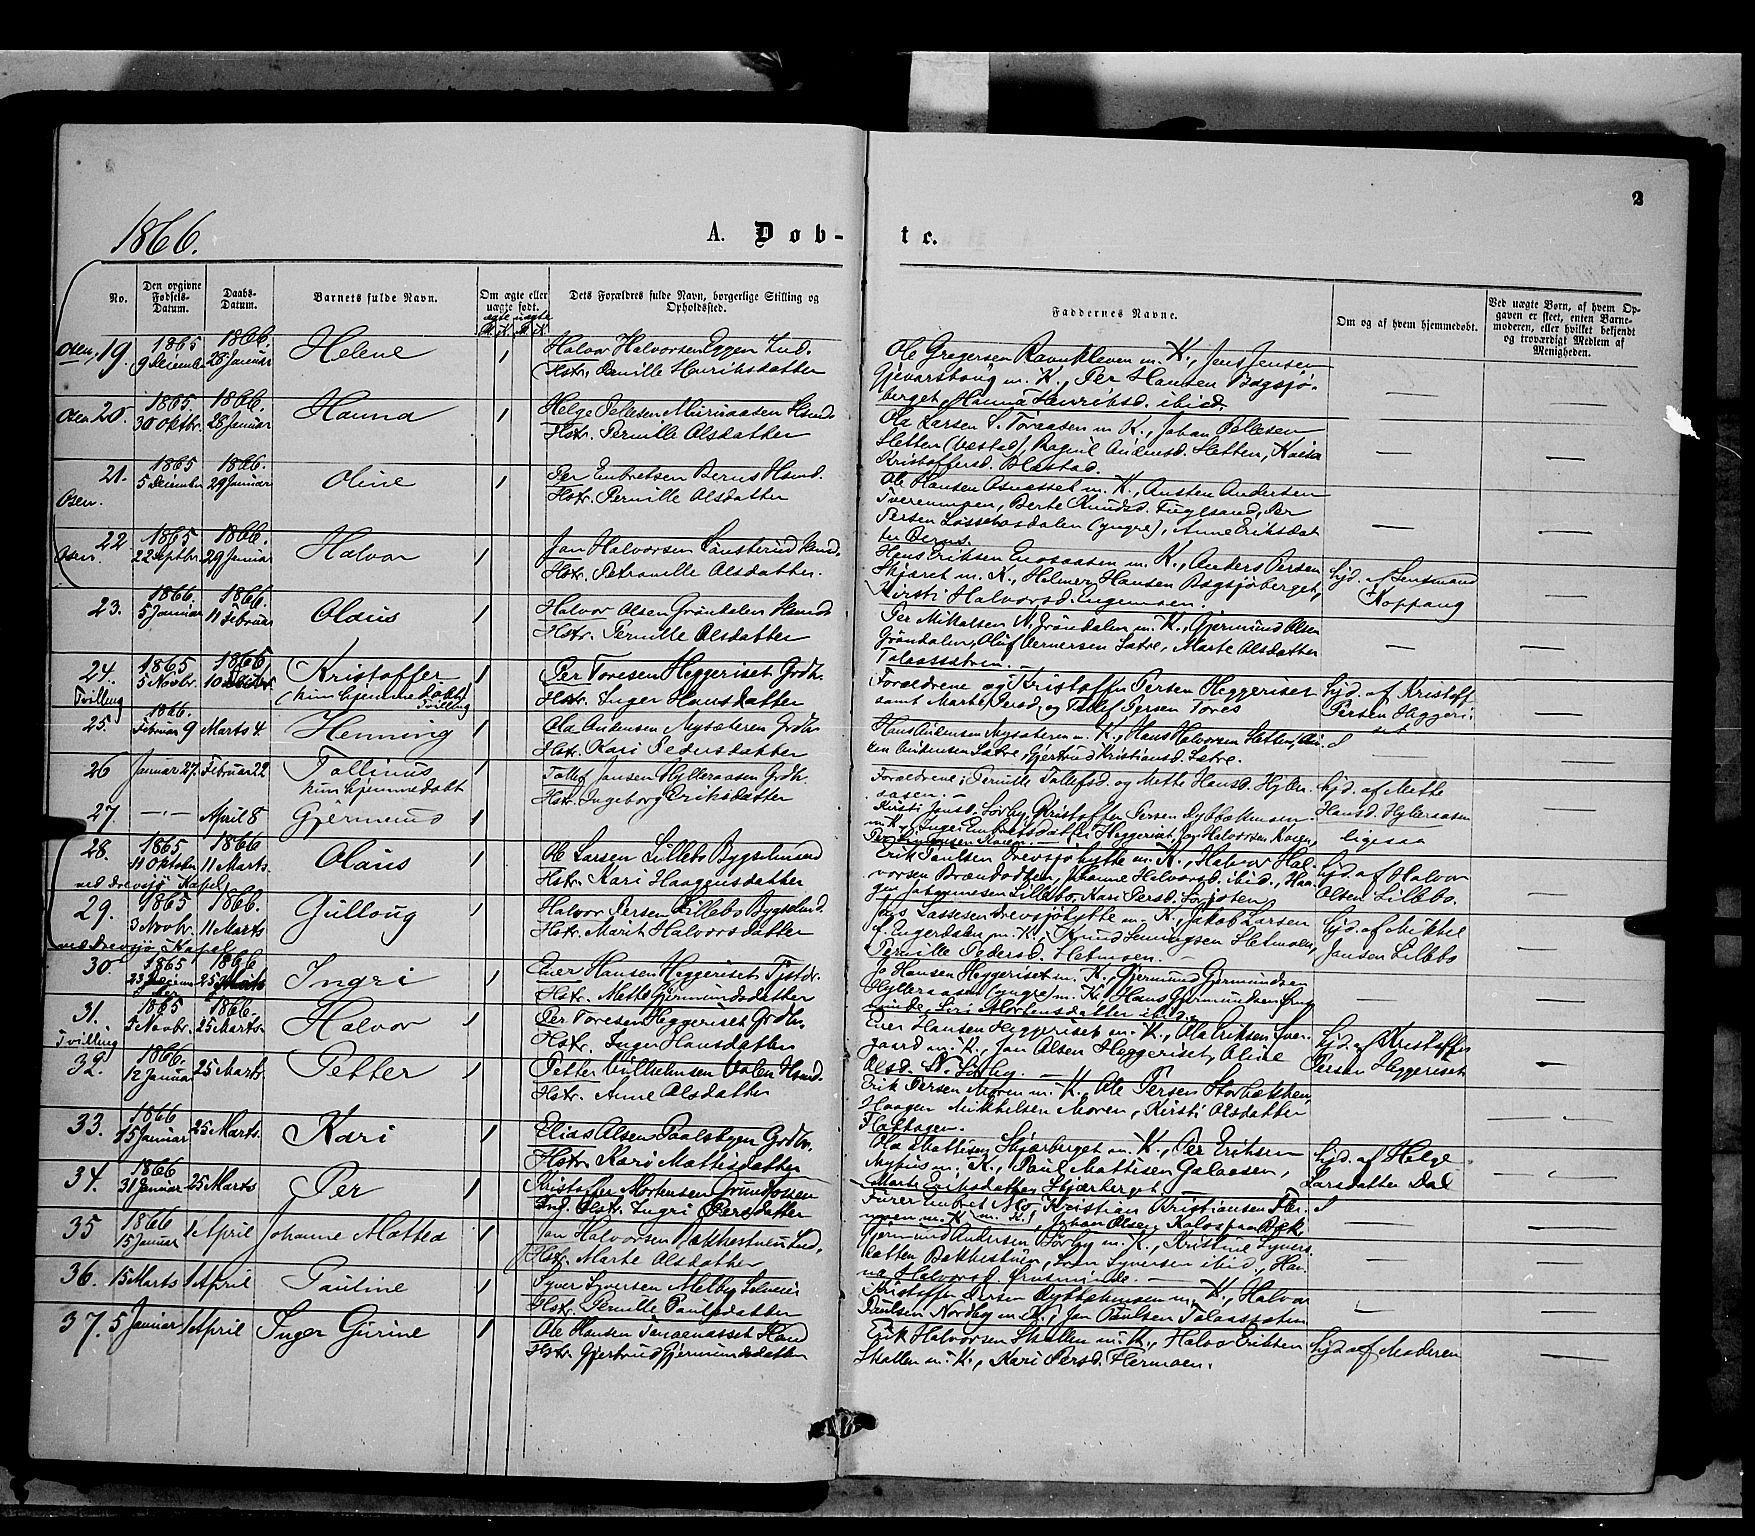 2
1866.
A. Døb-
te.
No.
Den opgivne Fødsels-Datum.
Daabs-Datum.
Barnets fulde Navn.
Om ægte eller uægte født.
ægte uægte
M. K. M. K.
Dets Forældres fulde Navn, borgerlige Stilling og Opholdssted.
Faddernes Navne.
Om og af hvem hjemmedøbt.
Ved uægte Børn, af hvem Opgaven er skeet, enten Barnemoderen, eller hvilket bekjendt og troværdigt Medlem af Menigheden.
Osen, 19.
1865
9 Deiember
1866.
28 Januar
Helene
Halvor Halvorsen Eggen Ind.
Hstr. Pernille Henriksdatter
Ole Gregersen Ravnkleven m. K., Jens Jensen
Gjevarshaug m. K., Per Hansen Bagsjø-
berget, Hanna Henriksd. ibid.
Osen 20.
1865
30 Oktbr.
1866.
28 Januar
Hanna
Helge Pellesen
Hstr. Pernille Olsdatter
Ola Larsen S. Toraasen m. K., Johan Pellesen
Sletten
Kristoffersd. Blæstad.
21.
Osen.
1865
5 Deiember
1866.
29 Januar
Oline
Per Embretsen Berns Hsmd.
Hstr. Pernille Olsdatter
Ole Hansen Osnesset m. K., Austen Andersen
Tverenmoen, Berte Knudsd. Fuglesand, Per
Persen (yngre), Anne Eriksdat
ter Berns.
22
Osen.
1865
22 Septbr.
1866.
29 Januar
Halvor
Jan Halvorsen Lønsterud Hsmd.
Hstr. Petronille Olsdatter.
Hans Eriksen m. K., Anders Persen
Skjæret m. K., Helmer Hansen Bagsjøberget,
Kirsti Halvorsd. Engemoen.
Hjd. af Lensmand
Koppang
23.
1866.
5 Januar
1866.
11 Februar
Olaus
Halvor Olsen Grøndalen Hsmd.
Hstr. Pernille Olsdatter
Per Mikkelsen N. Grøndalen m. K., Gjermund Olsen
Grøndalen, Oluf Vernersen Sætre, Marte Olsdatter
24.
Tvilling
1865
5 Novbr.
1865,
10
Kristoffer
(hun hjemmedøbt)
Tvilling
Per Toresen Heggeriset Grdbr.
Hstr. Inger Hansdatter
Forældrene og Kristoffer Persen Heggeriset
samt Marte Persd. og Tollef Persen Tores
Hjd. af Kristoff
Persen Heggeri
set
25.
1866.
Februar 9
Marts 4
Henning
Ola Andersen Nysæteren Grdbr
Hstr. Kari Pedersdatter
Hans Andersen Nysæteren m. K., Hans Halvorsen Sletten,
Andersen Sætre, Gjertrud Kristiansd. Sætre.
26
Januar 27.
Februar 22
Tollinus
kun hjemmedøbt
Tollef Jansen Hylleraasen Grdbr.
Hstr. Ingeborg Eriksdatter
Forældrene; Pernille Tollefsd. og Mette Hansd. Hylle-
raasen. —
Hjd. af Mette
Hansd. Hylleraasen
27.
—"—
April 8
Gjermund
Kirsti Jensd. Sørby, Kristoffer Persen Rybakmoen
m. K., Inger Embretsdatter Heggeriset, Jon Halvorsen
ligesaa
28.
ved Drevsjø Kapel
1865
11 Oktober
1866
11 Marts
Olaus
Ole Larsen Lillebo Bygselmand
Hstr. Kari Haagensdatter
Erik Paulsen Drevsjøhytte m. K., Halvor Hal-
vorsen Brændodden, Johanne Halvorsd. ibid., Haa-
gen Johannesen Lillebo, Kari Persd.
Hjd. af Halvor
Olsen Lillebo.
29.
ved Drevsjø Kapel
1865
3 Novbr.
1866.
11 Marts
Gulloug
Halvor Persen Lillebo Bygselmd.
Hstr. Marit Halvorsdatter
Lassesen Drevsjøhytte m. K., Jakob Larsen
Engerdalen m. K., Knud Hetmoen,
Pernille Pedersd. Hetmoen. —
Hjd. af Mikkel
Jansen Lillebo
30.
1865
23 Deiem
ber
1866
25 Marts
Ingri
Ener Hansen Heggeriset
Hstr. Mette Gjermundsdatter
Jo Hansen Heggeriset m. K., Gjermund Gjermundsen
Hylleraasen (yngre) m. K., Hans Gjermundsen
Siri Mortensdatter ibid.
31.
Tvilling
1865
5 Novbr.
1866.
25 Marts.
Halvor
Per Toresen Heggeriset Grdbr.
Hstr. Inger Hansdatter
Ener Hansen Heggeriset m. K., Ola Eriksen
gaard m. K., Jan Olsen Heggeriset, Oline
Olsd. N. Sørby. —
Hjd. af Kristoffer
Persen Heggeriset
32.
1866
12 Januar
25 Marts
Petter
Petter Vilhelmsen Valen Hsmd.
Hstr. Anne Olsdatter
Erik Persen Moren m. K., Ole Persen Storbækken,
Haagen Mikkelsen Moren, Kirsti Olsdatter
Flathagen.
33.
1866
15 Januar
25 Marts.
Kari
Elias Olsen Paalsbyen Grdbr.
Hstr. Kari Mattisdatter
Ola Mattisen Skjærberget m. K., Per Eriksen
Myhus m. K., Paul Mattisen Galaasen,
Marte Eriksdatter Skjærberget
Hjd. af Helge
Larsdatter Dal
34.
1866
31 Januar
25 Marts
Per
Kristoffer Mortensen
Ind. Hstr. Ingri Persdatter
Furer Embret Mo, Kristian Kristiansen Fler-
moen m. K., Johan Olsen
35
1866
15 Januar
2 April
Johanne Mattea
Jan Halvorsen Bækkestuen Ind.
Hstr. Marte Olsdatter
Gjermund Andersen Sørby m. K., Kristine Syvers-
datter Bækkestuen, Iver Syversen ibid., Han-
na Halvorsd. —
36.
15 Marts
1 April
Pauline
Syver Syversen Melby Selveier
Hstr. Pernille Paulsdatter
Kristoffer Persen Rybakmoen m. K., Halvor
Paulsen Nordby m. K., Jan Paulsen
37.
5 Januar
1 April
Inger Gurine
Ole Hansen Tangenesset
Hstr. Gjertrud Gjermundsdatter
Erik Halvorsen Skallen m. K., Halvor Eriksen
Skallen m. K., Kari Persd. Flermoen.
Hjd. af Moderen